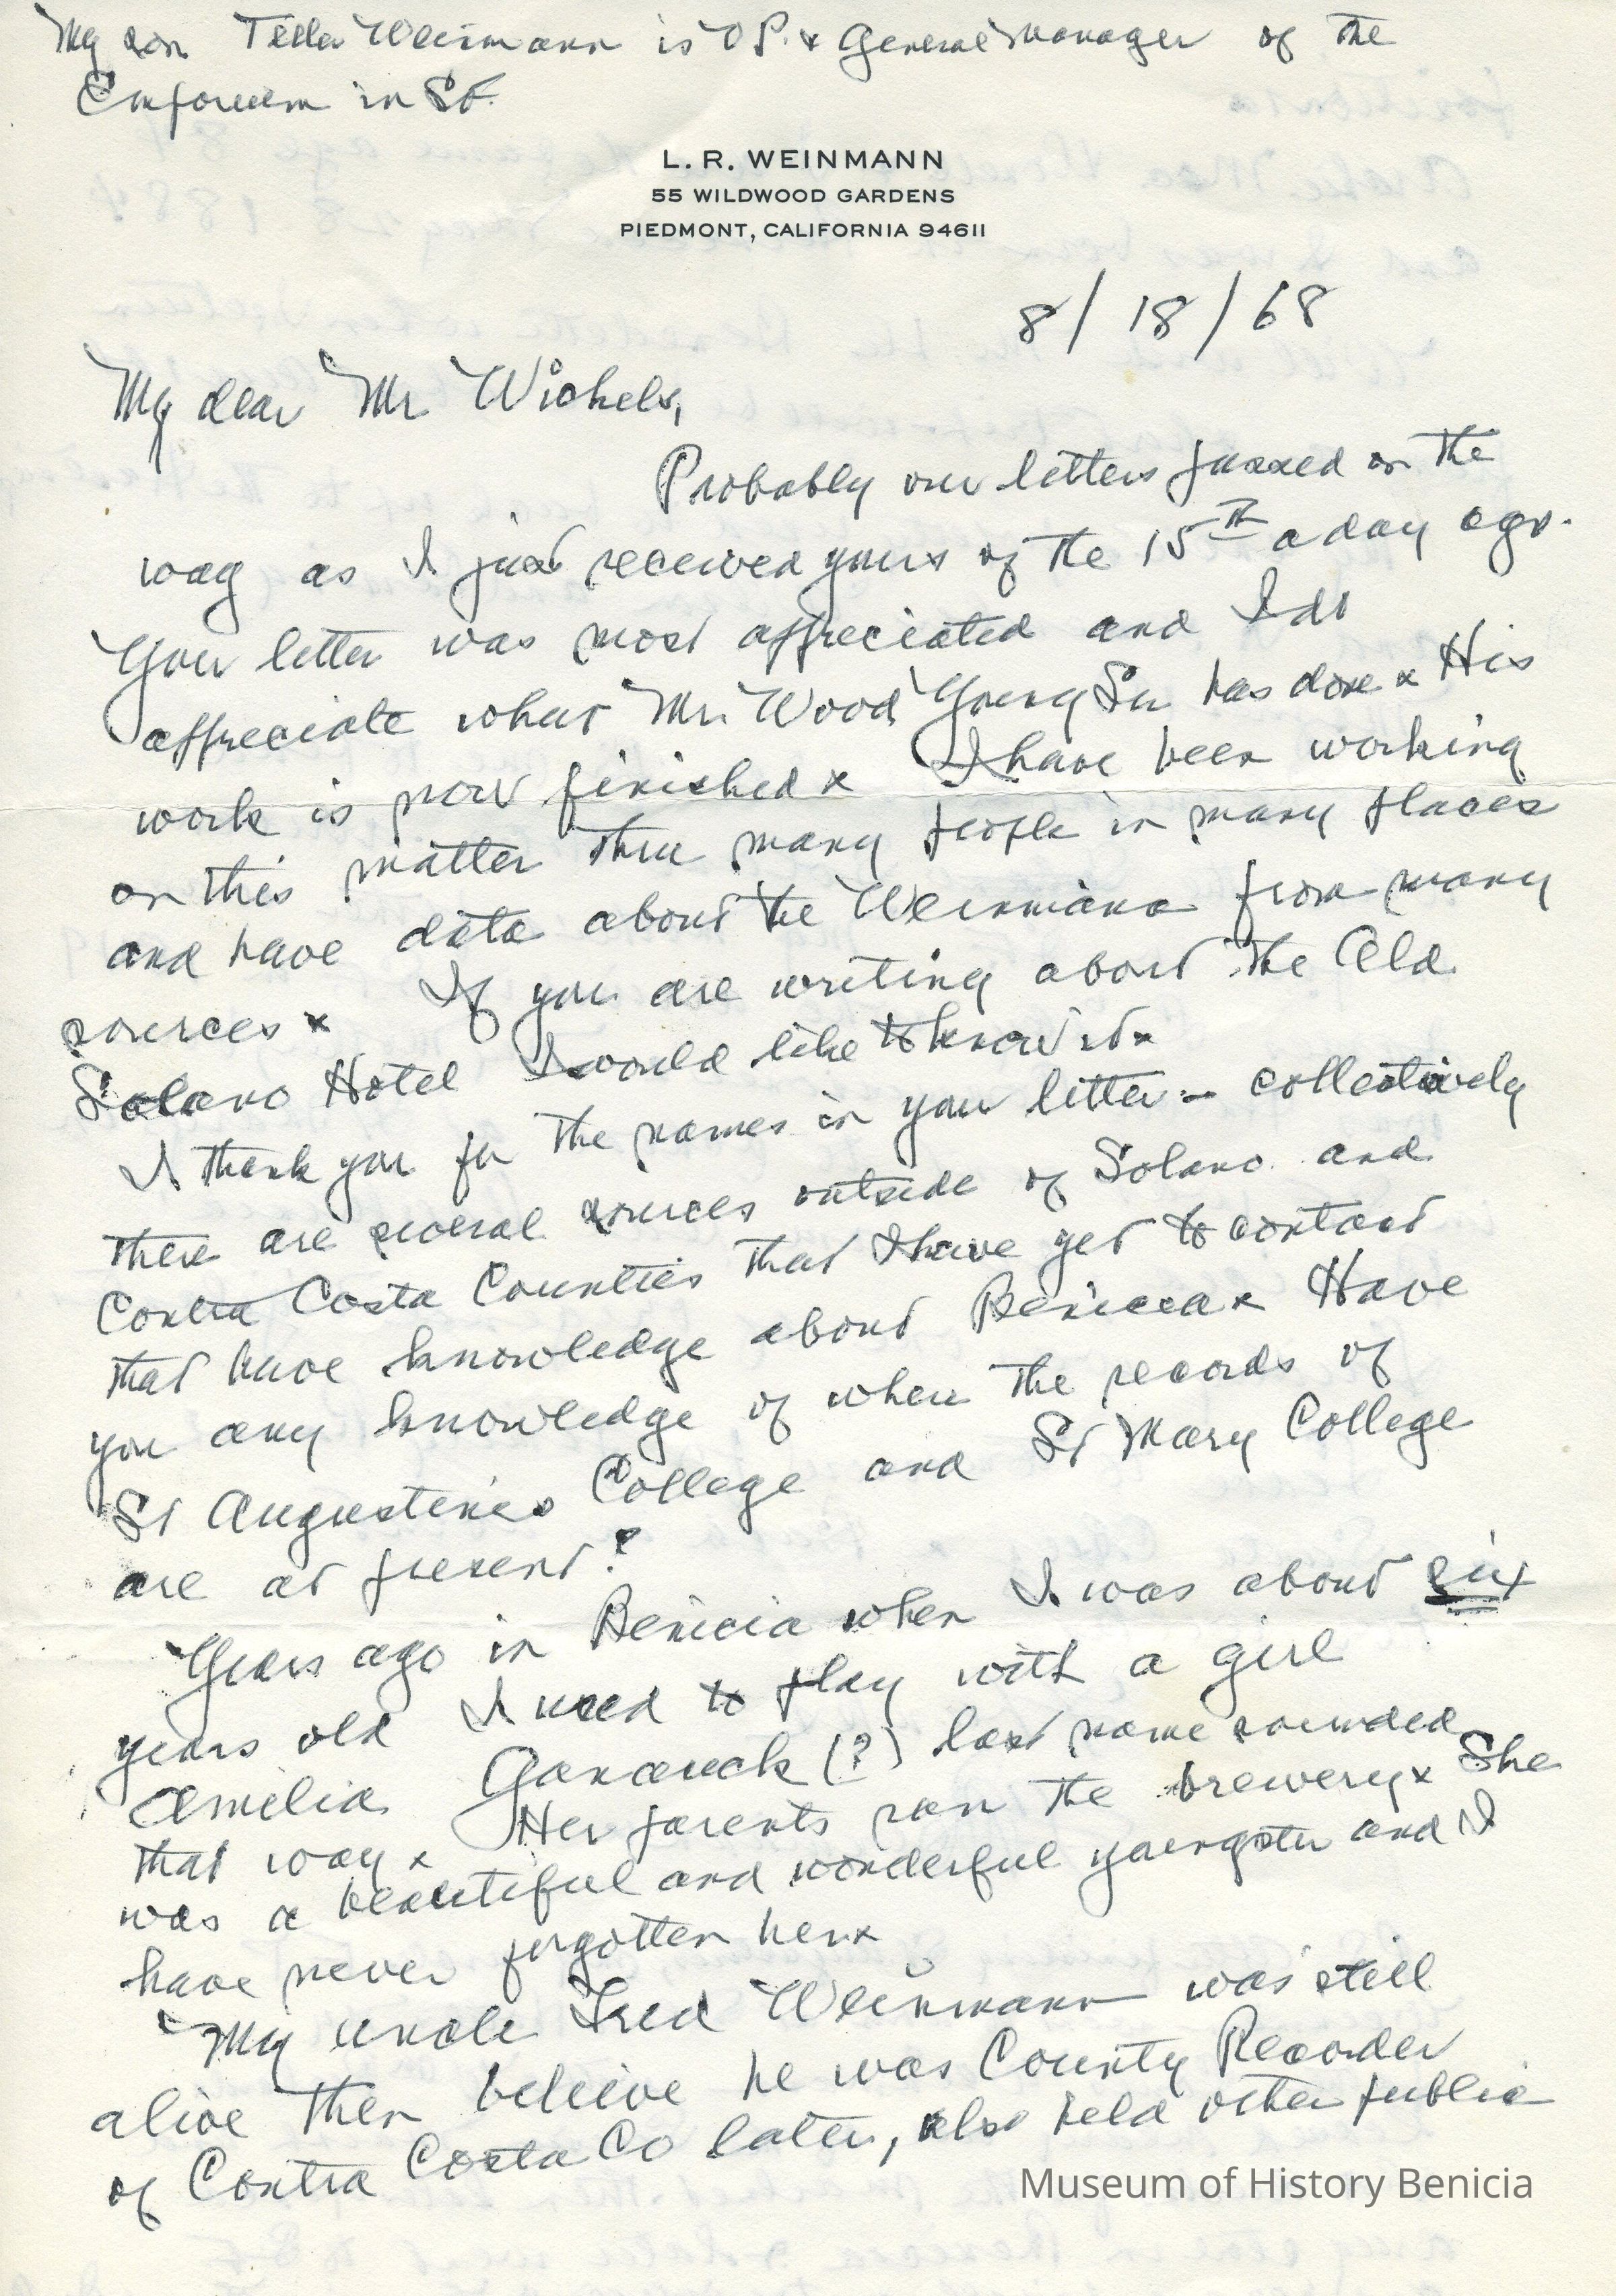 My son Teller Weinmann is V P. & General Manager of the
Emporium in S.F.
L. R. WEINMANN
55 WILDWOOD GARDENS
PIEDMONT, CALIFORNIA 94611
8/18/68
My dear Mr Wichels,
Probably our letters passed on the
way as I just received yours of the 15th a day ago.
Your letter was most appreciated and I do
appreciate what Mr. Wood Young Sr has done x His
work is now finished x I have been working
on this matter thru many people in many places
and have data about the Weinmann from many
sources x If you are writing about the Old
Solano Hotel I would like to know it x
I thank you for the names in your letter - collectively
there are several sources outside of Solano and
Contra Costa Counties that I have yet to contact
that have knowledge about Benicia x Have
you any knowledge of where the records of
St Augustines College and St Mary College
are at present?
Years ago in Benicia when I was about six
years old I used to play with a girl
Amelia (?) last name sounded
that way x Her parents ran the brewery x She
was a beautiful and wonderful youngster and I
have never forgotten her x
My uncle Fred Weinmann was still
alive then believe he was County Recorder
of Contra Costa Co later, also held other public
Museum of History Benicia